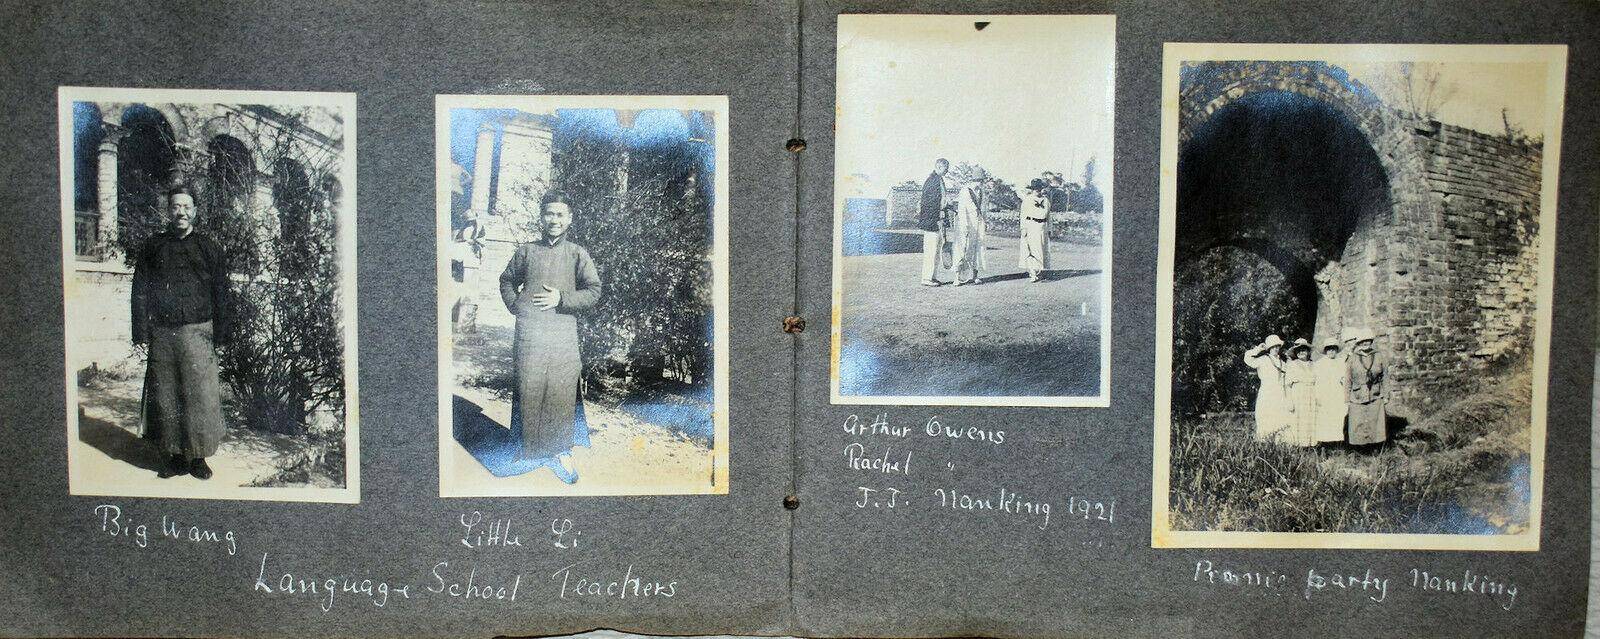 Big Wang
Little Li
Language School Teachers
Arthur Owens
Rachel "
J.J. Nanking 1921
Picnic party Nanking